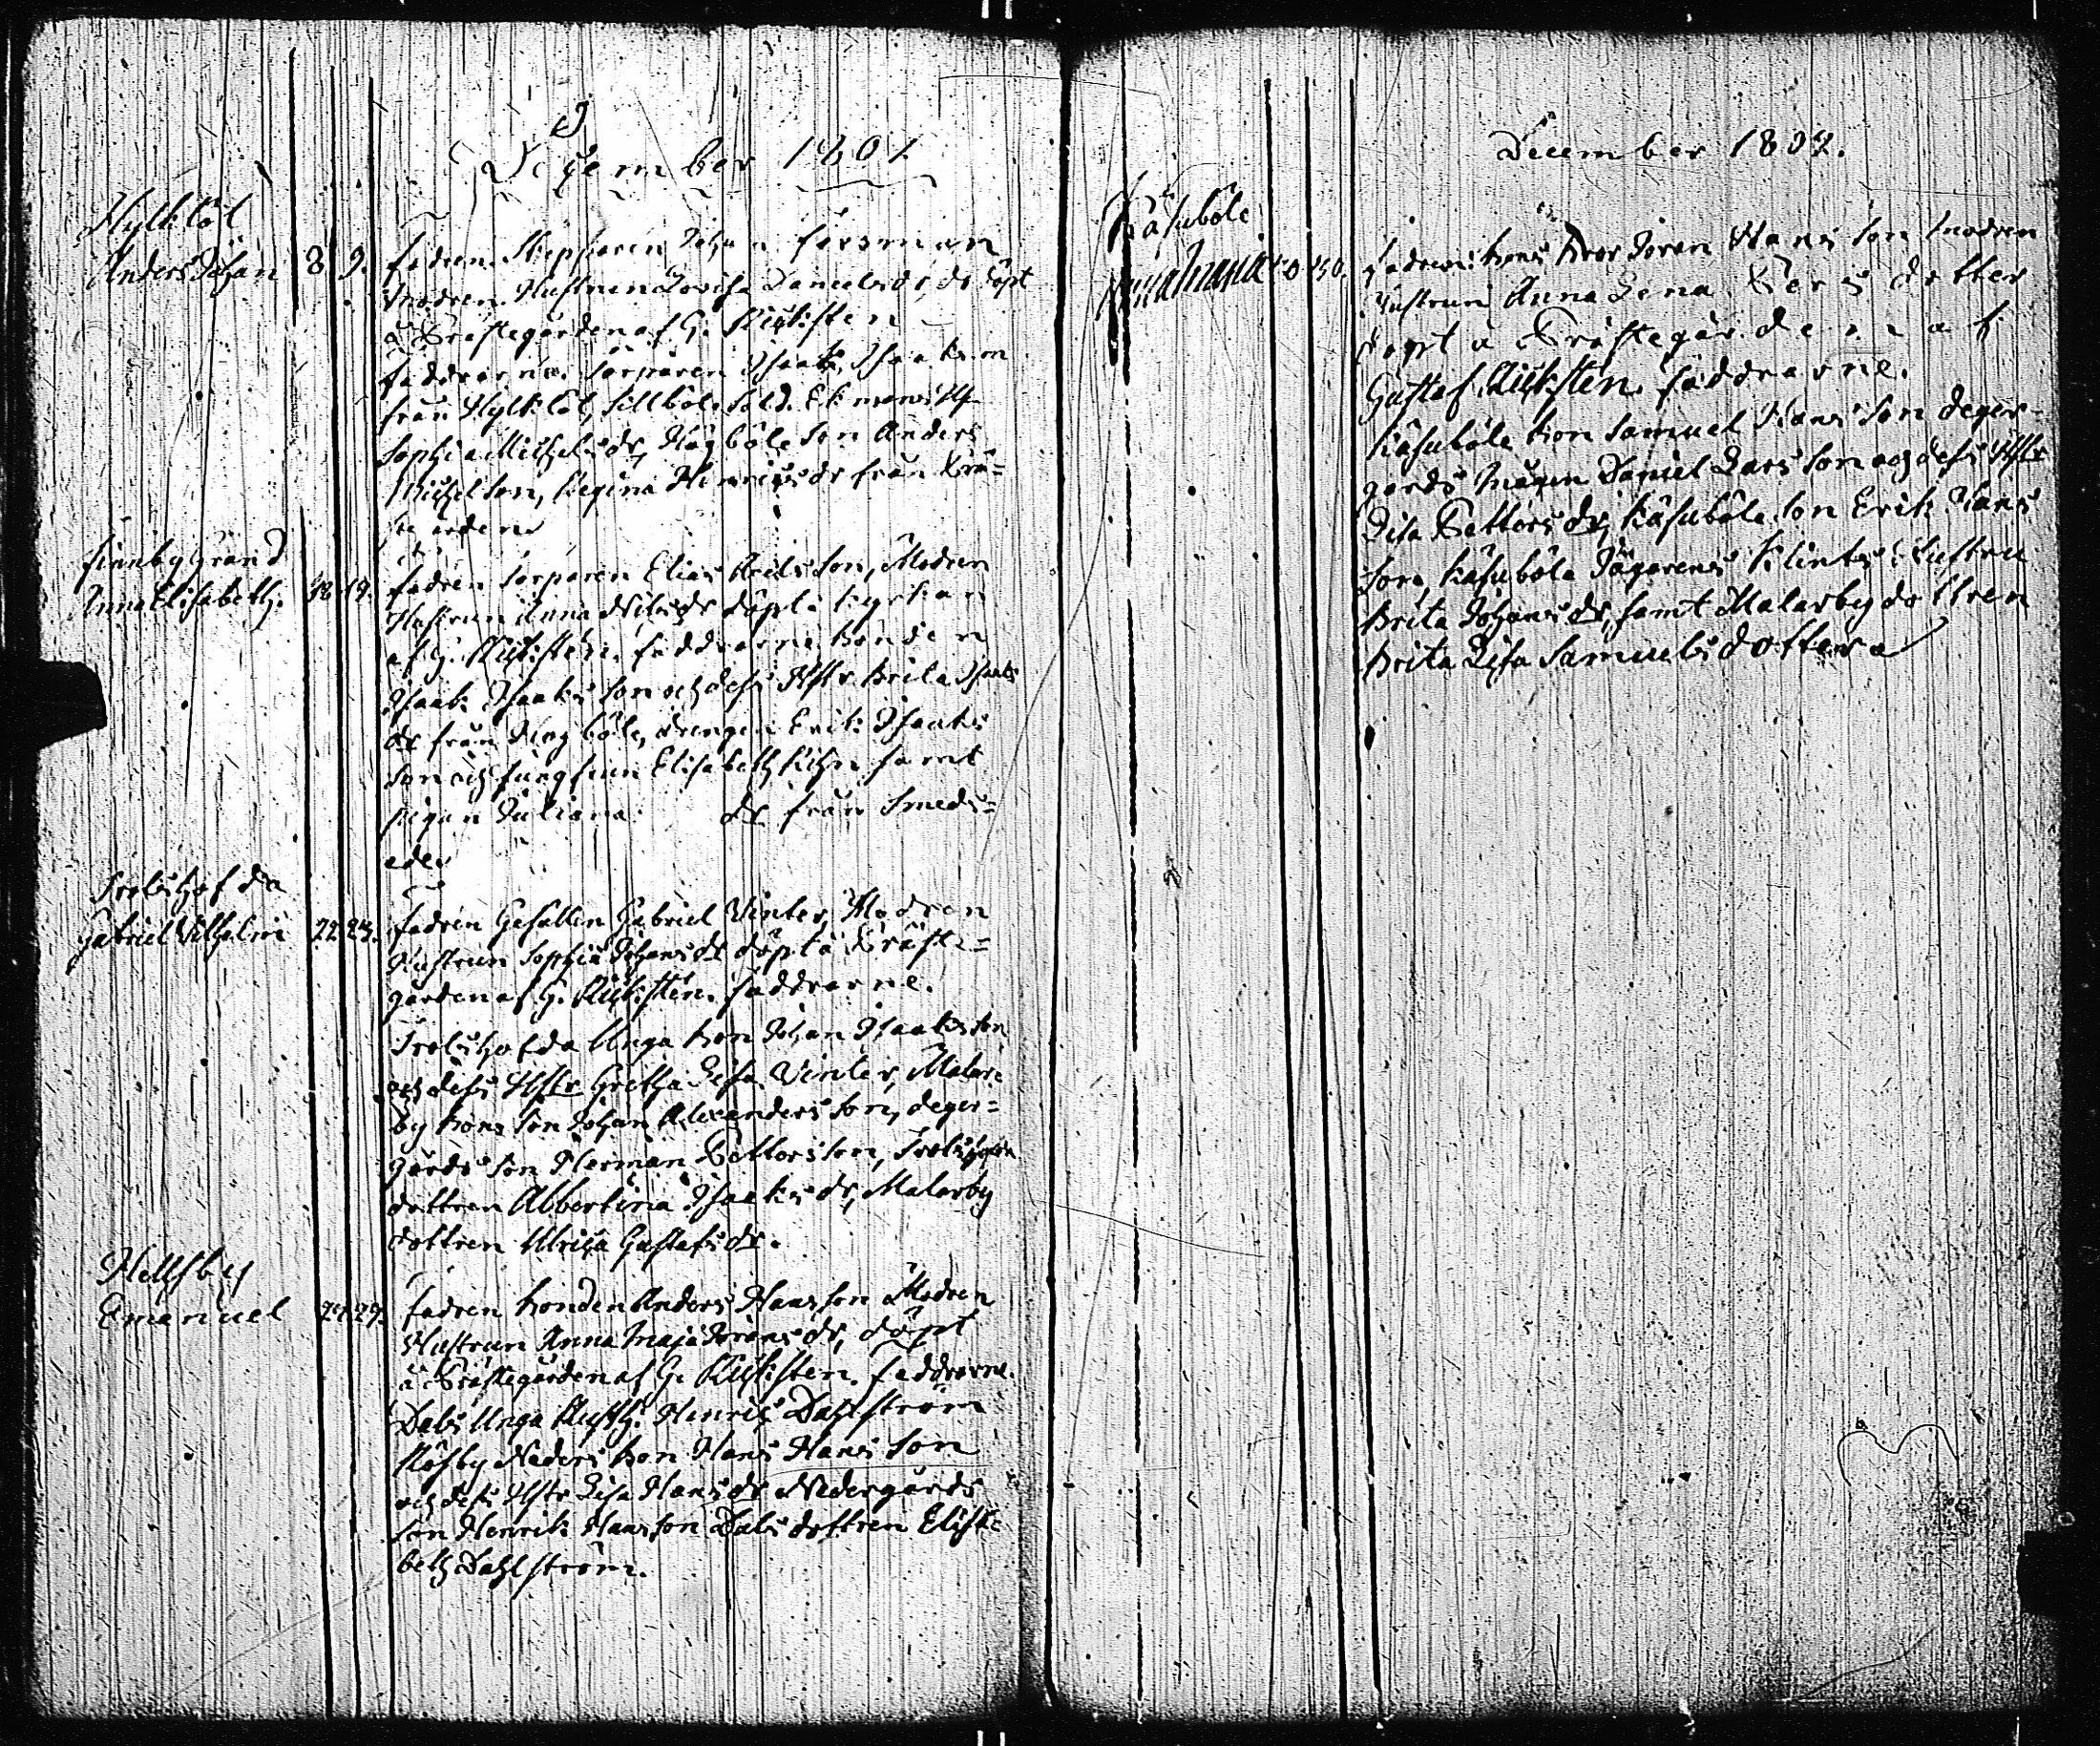 December 1801
Hylktöl
Anders Johan 8 9. fadren Skepparen Johan Forsman
Modren Hustrun Lovisa Danielsdr, döpt
i Prästegården af G. Ricksten
faddrarne. Torparen Isaak Isaaksson
från Hylktöl, Sillböle Sold. Ekmans Hst
Sophia Michelsdr, Högböle Son Anders
Michelson, Regina Henricsdr från Prä=
Finnby Gränd
Anna Elisabeth. 18 19. fadren Torparen Elias Nilsson, Modren
Hustrun Anna Nilsdr döpt i kyrkan
af G. Ricksten. faddrarne bonden
Isaak Isaaksson och dess Hstr Brita Isaks
dr från Högböle, drengen Erik Isaaks
son och jungfrun Elisabeth samt
pigan Juliana dr från Smeds=
ede.
Trotshofda
Gabriel Vilhelm 22 23. fadren Gesällen Gabriel Vinter, Modren
Hustrun Sophia Johansdr döpt i Präste=
gården af G. Ricksten. faddrarne.
Trotshofda Unga bon Johan Isaaksson
och dess Hstr Gretha Lisa Vinter, Malar
by bons son Johan Alexandersson, deger=
gårds son Herman Pettersson, Trotshofda
dottren Albertina Isaaksdr, Malarby
dottren Ulrica Gustafsdr.
Hellsby
Emanuel 27 29. fadren bonden Anders Hansson Modren
Hustrun Anna Maja Jöransdr, döpt
i Prästegården af G. Ricksten. faddrarne.
Dals Unga Henric Dahlström
Näsby Neders bon Hans Hansson
och dess Hstr Lisa Hansdr Nedergårds
son Henrik Hansson Dals dottren Elisa
beth Dahlström.
December 1801.
Käsuböle
Anna Maria 30. fadren bons bror Jöran Hansson modren
Hustrun Anna Lena Persdotter
döpt i Prästegården af
Gustaf Ricksten. faddrarne.
Käsuböle bon Samuel Hansson deger=
gårds mågen Daniel Larsson och dess Hstr
Lisa Pettersdr, Käsuböle son Erik Hans
son, Käsuböle Jägarens Klints Hustru
Brita Johansdr, samt Malarby dottren
Brita Lisa Samuelsdotter